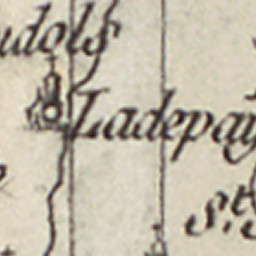 udols
Ladepay
St.